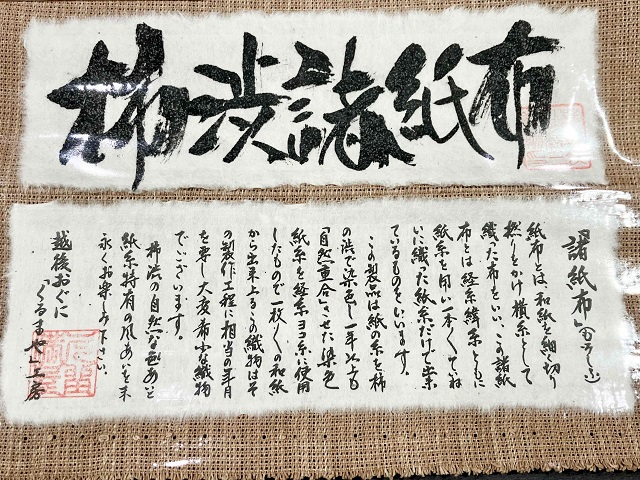 柿渋諸紙布
諸紙布(もろそふ)
紙布とは、和紙を細く切り
撚りをかけ横糸として
織った布をいい、この諸紙
布とは経糸緯糸ともに
紙糸を用い一本一本ていね
いに織った紙糸だけで出来
ているものをいいます。
この製品は紙の糸を柿
の渋で染色し一年以上も
「自然重合」させた染色
紙糸を経糸ヨコ糸に使用
したもので一枚一枚の和紙
から出来上るこの織物はそ
の製作工程に相当の年月
を要し大変希少な織物
でございます。
柿渋の自然な色あいと
紙糸特有の風あいを末
永くお楽しみ下さい。
越後おぐに
「くるまや」工房